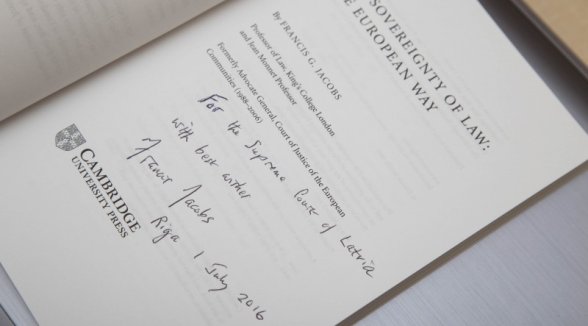 SOVEREIGNTY OF LAW:
E EUROPEAN WAY
By FRANCIS G. JACOBS
Professor of Law, King's College London
and Jean Monnet Professor
Formerly Advocate General, Court of Justice of the European
Communities (1988–2006)
For the Supreme Court of Latvia
with best wishes
Francis Jacobs
Riga 1 July 2016
CAMBRIDGE
UNIVERSITY PRESS